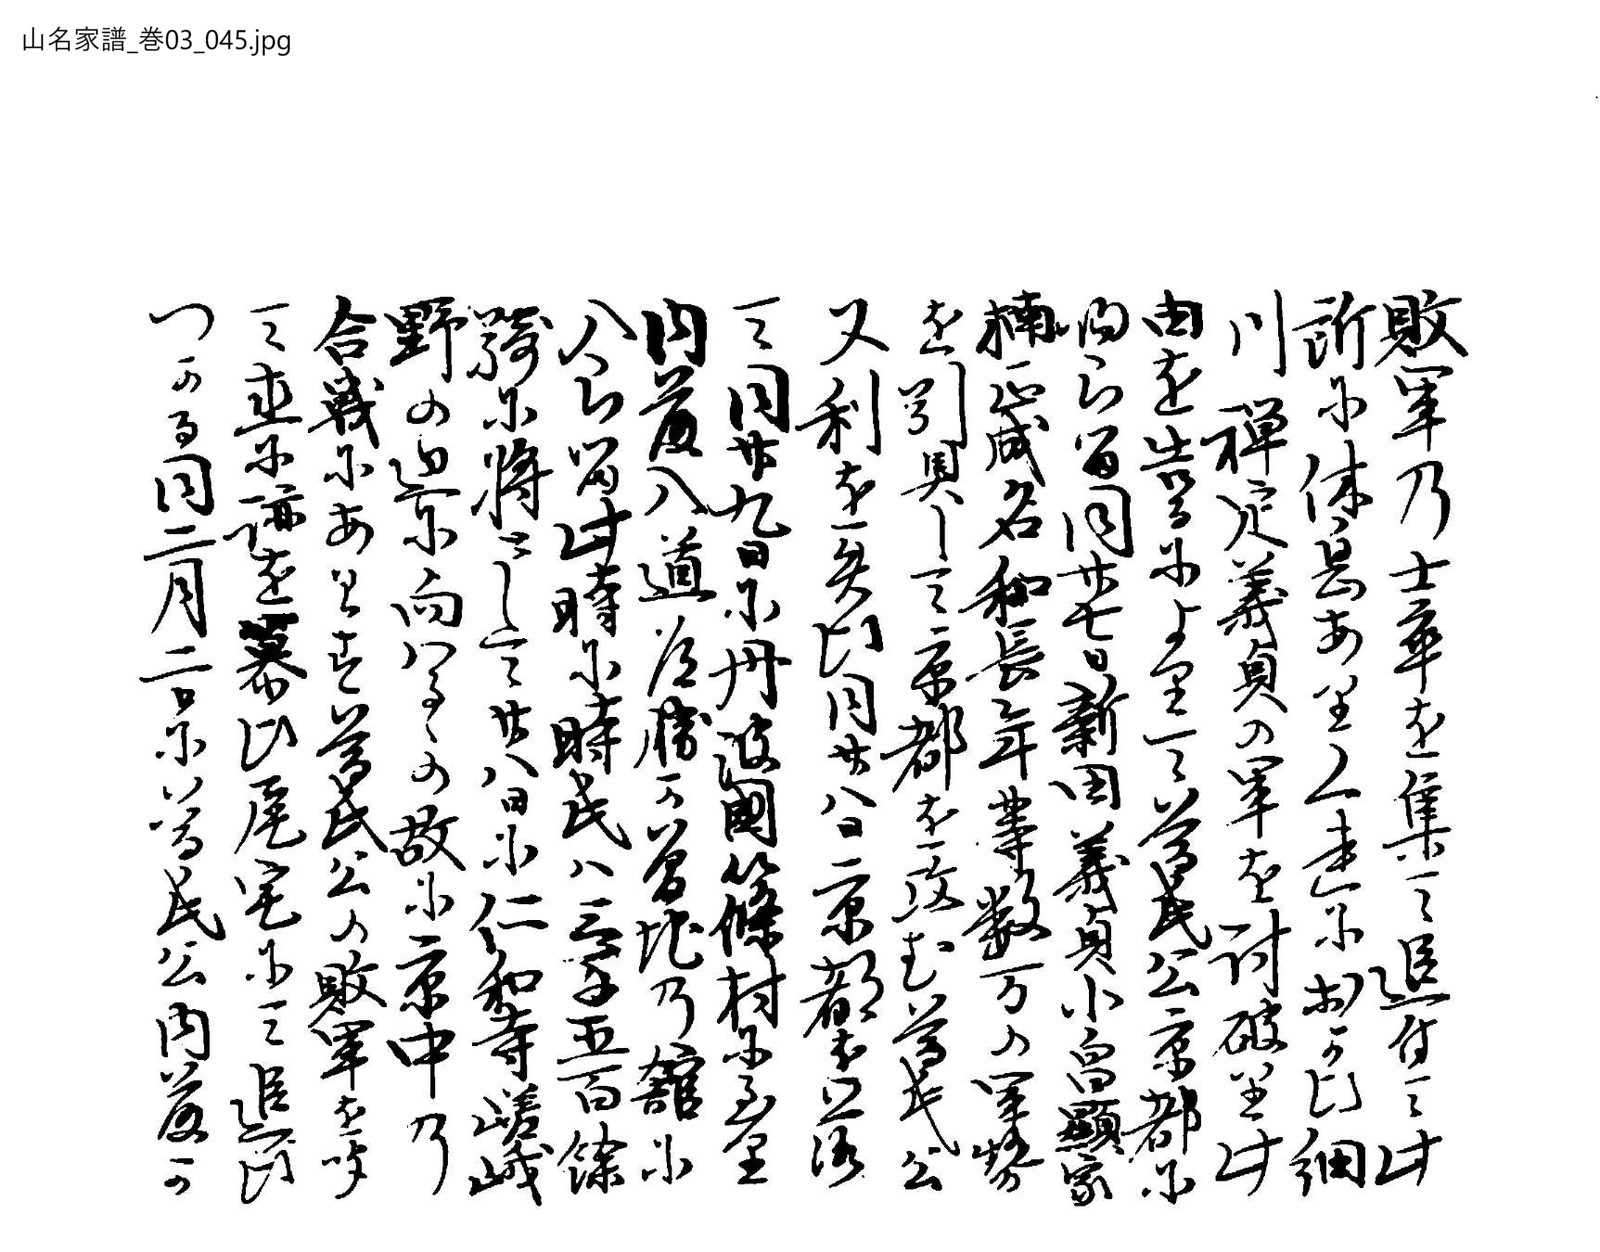 山名家譜_巻03_045.jpg
敗軍乃士卒を集て追付て此
所に休息ありし人走に出かひ細
川禅定義貞の軍を討破り此
由を告るによりて尊氏公京都に
ら留同廿七日新田義貞小畠顕家
楠正成名和長年等数万の軍勢
を引具して京都を攻む尊氏公
又利を失ひ同廿八日京都を落
て同廿九日に丹波国篠村に至り
内藤入道道勝か曽地乃舘に
入ら留此時に時氏ハ三千五百餘
騎に将として廿八日に仁和寺嵯峨
野の辺に向ハるゝの故に京中乃
合戦にあハす尊氏公の敗軍を聞
て直に跡を慕ひ尾宅にて追ひ
つかる同二月二日に尊氏公内藤か